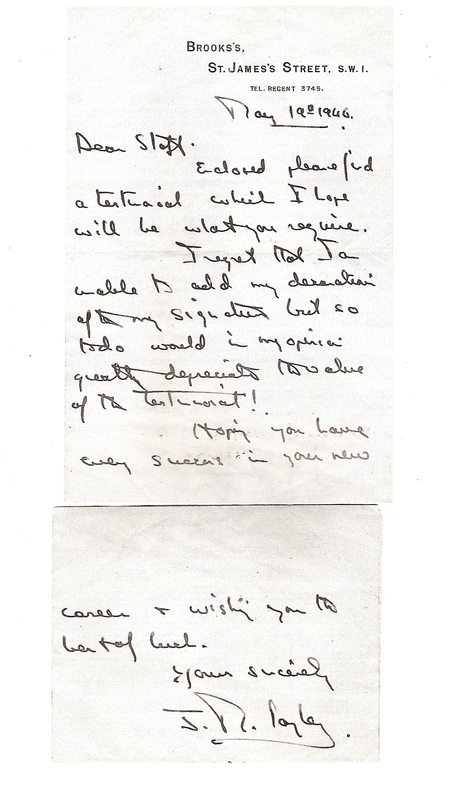 BROOKS'S,
ST. JAMES'S STREET, S.W.1.
TEL. REGENT 3745.
May 19th 1946.
Dear Stoff.
Enclosed please find
a testimonial which I hope
will be what you require.
I regret that I am
unable to add my decorations
after my signature but so
to do would in my opinion
greatly depreciate the value
of the testimonial!
Hoping you have
every success in your new
career + wishing you the
best of luck.
Yours sincerely
J. R.